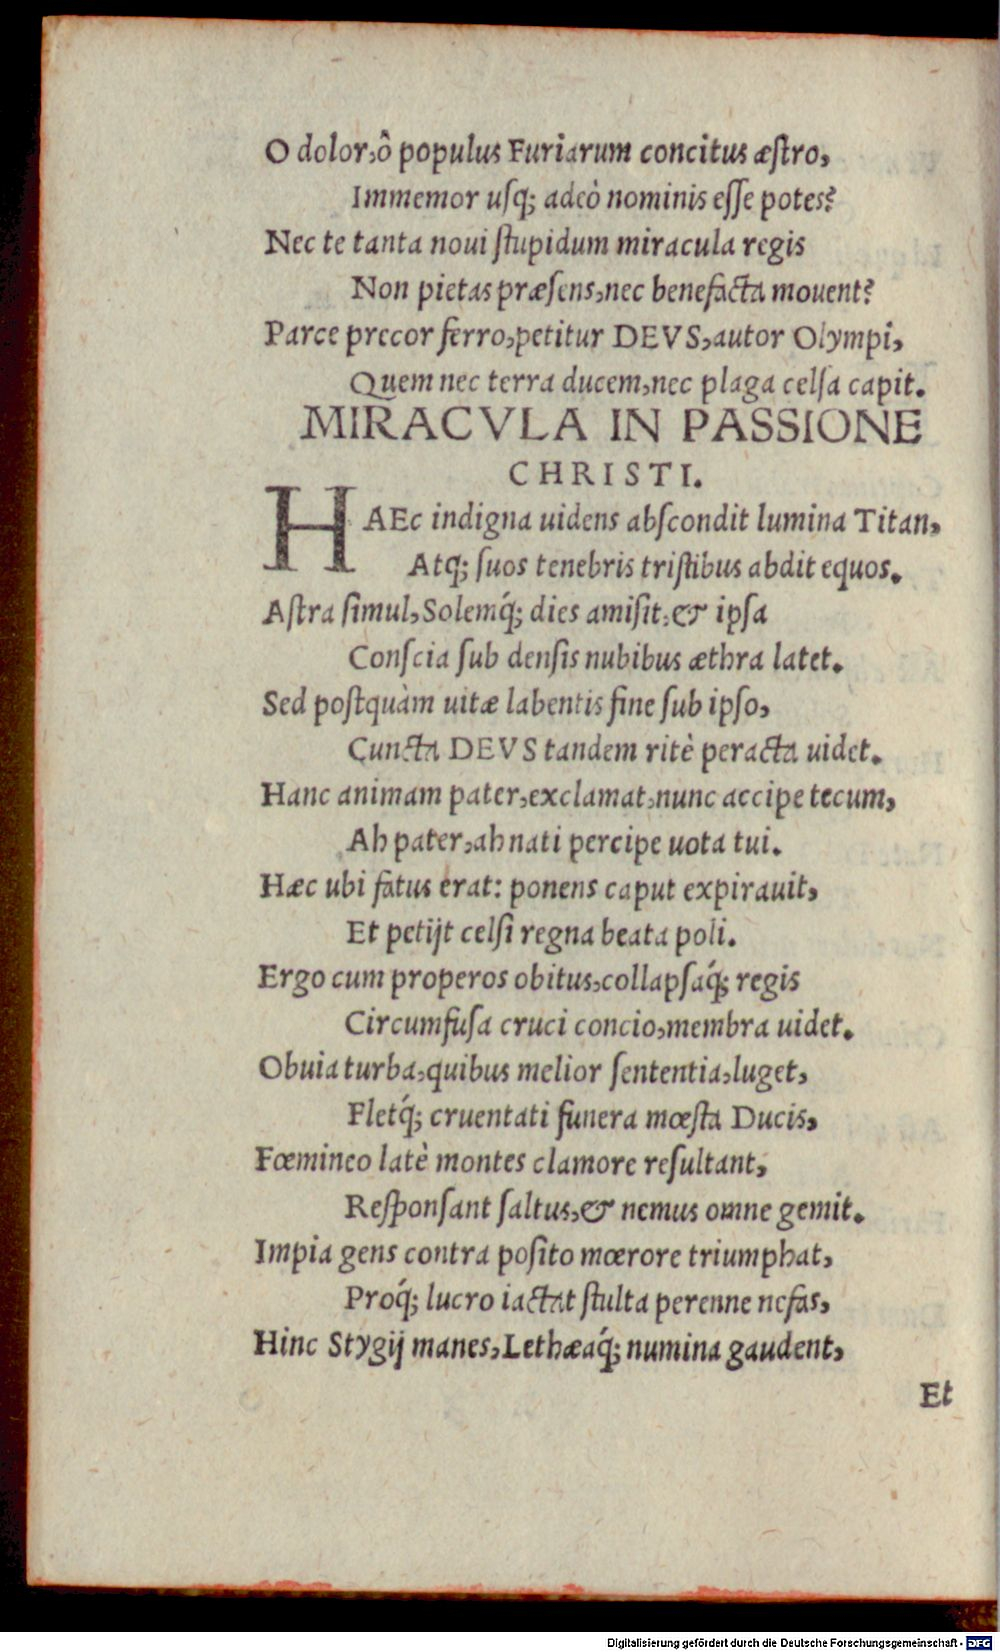 O dolor, ô populus Furiarum concitus æſtro,
Immemor uſq; adeò nominis eſſe potes?
Nec te tanta noui ſtupidum miracula regis
Non pietas præſens, nec benefacta mouent?
Parce precor ferro, petitur DEVS, autor Olympi,
Quem nec terra ducem, nec plaga celſa capit.
MIRACVLA IN PASSIONE
CHRISTI.
HAEc indigna uidens abſcondit lumina Titan,
Atq; ſuos tenebris triſtibus abdit equos.
Aſtra ſimul, Solemq́; dies amiſit, & ipſa
Conſcia ſub denſis nubibus æthra latet.
Sed poſtquàm uitæ labentis fine ſub ipſo,
Cuncta DEVS tandem ritè peracta uidet.
Hanc animam pater, exclamat, nunc accipe tecum,
Ah pater, ah nati percipe uota tui.
Hæc ubi fatus erat: ponens caput expirauit,
Et petijt celſi regna beata poli.
Ergo cum properos obitus, collapſaq́; regis
Circumfuſa cruci concio, membra uidet.
Obuia turba, quibus melior ſententia, luget,
Fletq́; cruentati funera mœſta Ducis,
Fœmineo latè montes clamore reſultant,
Reſponſant ſaltus, & nemus omne gemit.
Impia gens contra poſito mœrore triumphat,
Proq́; lucro iactat ſtulta perenne nefas,
Hinc Stygij manes, Lethæaq́; numina gaudent,
Et
Digitalisierung gefördert durch die Deutsche Forschungsgemeinschaft - DFG